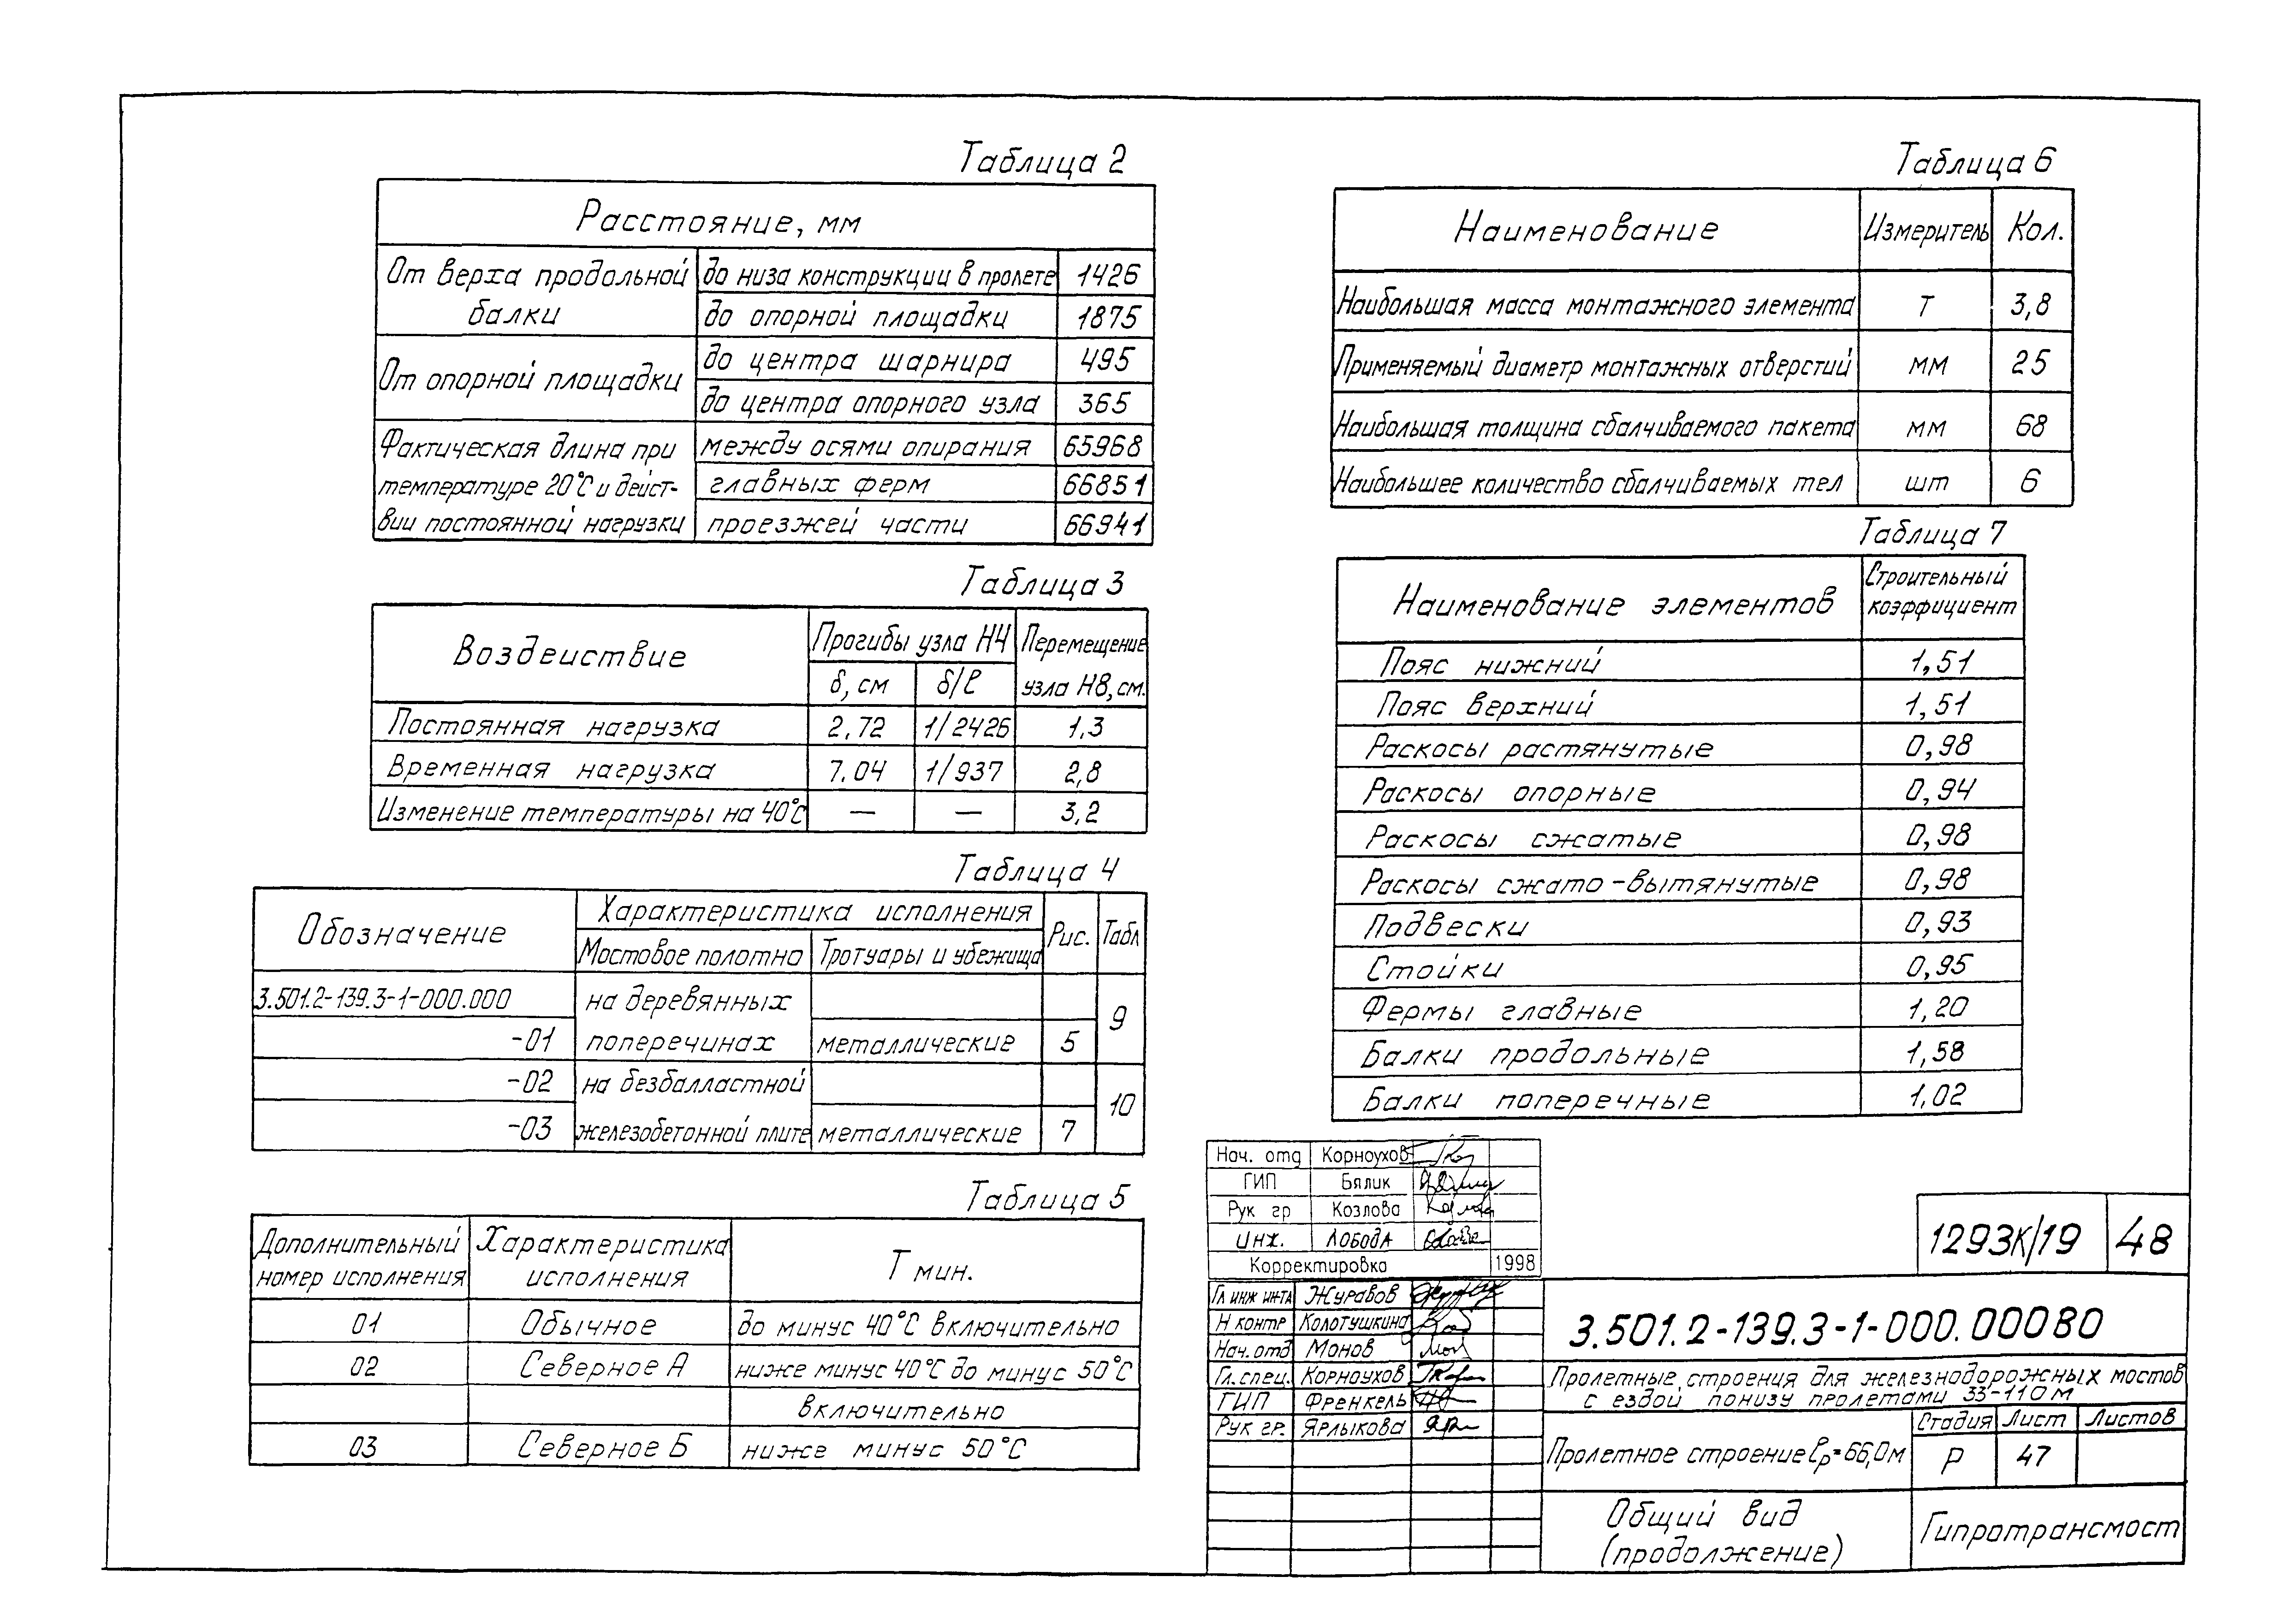 Таблица 2
Расстояние, мм
От верха продольной балки
до низа конструкции в пролете 1426
до опорной площадки 1875
От опорной площадки
до центра шарнира 495
до центра опорного узла 365
Фактическая длина при
температуре 20°С и дейст-
вии постоянной нагрузки
между осями опирания 65968
главных ферм 66851
проезжей части 66941
Таблица 3
Воздействие
Прогибы узла Н4
δ, см δ/ℓ
Перемещение
узла Н8, см.
Постоянная нагрузка 2.72 1/2426 1.3
Временная нагрузка 7.04 1/937 2,8
Изменение температуры на 40°С — — 3,2
Таблица 4
Обозначение
Характеристика исполнения
Мостовое полотно Тротуары и убежища
Рис. Табл
3.501.2-139.3-1-000.000 на деревянных 9
-01 поперечинах металлические 5
-02 на безбалластной 10
-03 железобетонной плите металлические 7
Таблица 5
Дополнительный
номер исполнения
Характеристика
исполнения
Т мин.
01 Обычное до минус 40°С включительно
02 Северное А ниже минус 40°С до минус 50°С
включительно
03 Северное Б ниже минус 50°С
Таблица 6
Наименование Измеритель Кол.
Наибольшая масса монтажного элемента т 3,8
Применяемый диаметр монтажных отверстий мм 25
Наибольшая толщина сбалчиваемого пакета мм 68
Наибольшее количество сбалчиваемых тел шт 6
Таблица 7
Наименование элементов
Строительный
коэффициент
Пояс нижний 1,51
Пояс верхний 1,51
Раскосы растянутые 0,98
Раскосы опорные 0,94
Раскосы сжатые 0,98
Раскосы сжато-вытянутые 0,98
Подвески 0,93
Стойки 0,95
Фермы главные 1,20
Балки продольные 1,58
Балки поперечные 1,02
Нач. отд Корноухов
ГИП Бялик
Рук гр Козлова
Инж. Лобода
Корректировка 1998
Гл инж инта Журавов
Н контр Колотушкина
Нач. отд Монов
Гл. спец. Корноухов
ГИП Френкель
Рук гр. Ярлыкова
1293К/19 48
3.501.2-139.3-1-000.000В0
Пролетные строения для железнодорожных мостов
с ездой понизу пролетами 33-110м
Пролетное строение ℓр=66,0м
Стадия Лист Листов
Р 47
Общий вид
(продолжение)
Гипротрансмост